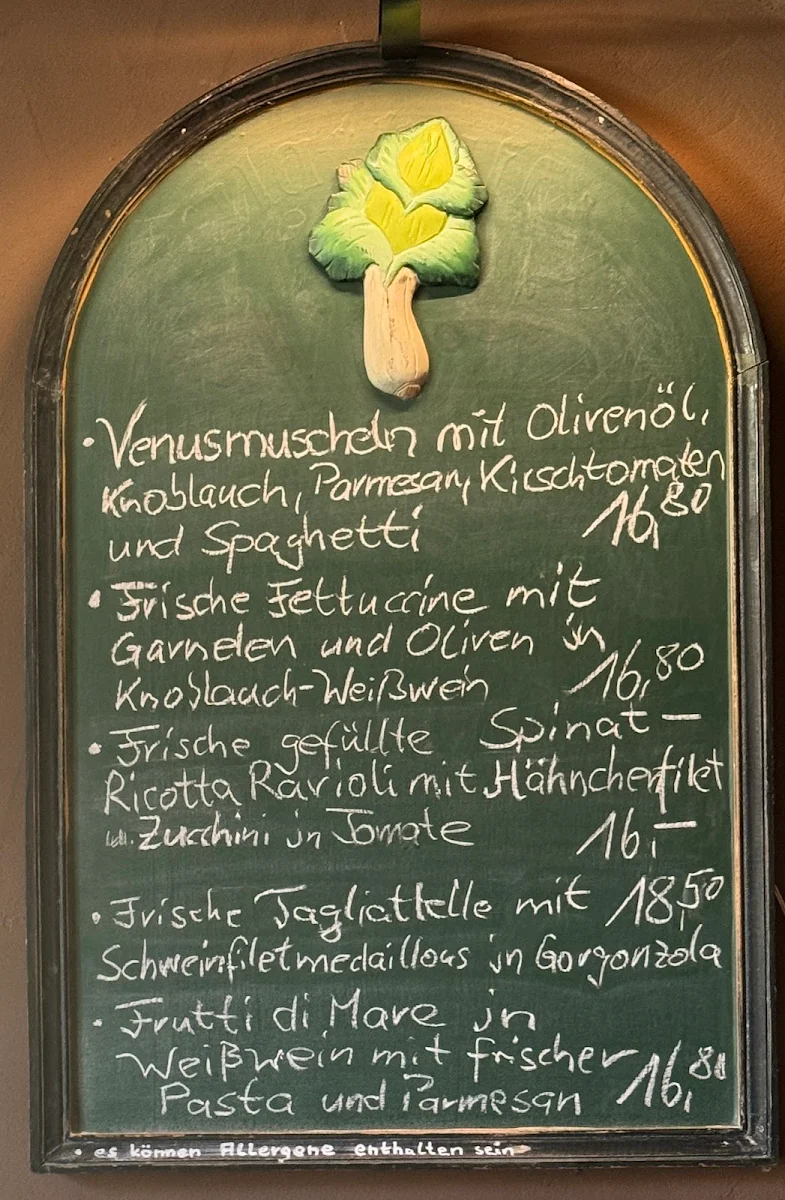 • Venusmuscheln mit Olivenöl,
Knoblauch, Parmesan, Kirschtomaten
und Spaghetti 16,80
• Frische Fettuccine mit
Garnelen und Oliven in
Knoblauch-Weißwein 16,80
• Frische gefüllte Spinat-
Ricotta Ravioli mit Hähnchenfilet
u. Zucchini in Tomate 16,-
• Frische Tagliattelle mit 18,50
Schweinfiletmedaillous in Gorgonzola
• Frutti di Mare in
Weißwein mit frischer
Pasta und Parmesan 16,80
• es können Allergene enthalten sein